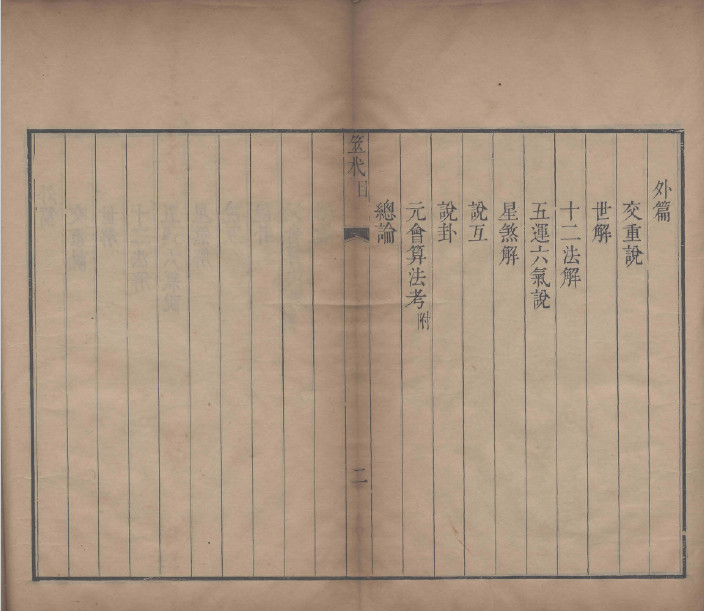 外篇
交重說
世解
十二法解
五運六氣說
星煞解
說互
說卦
元會算法考附
總論
目
二